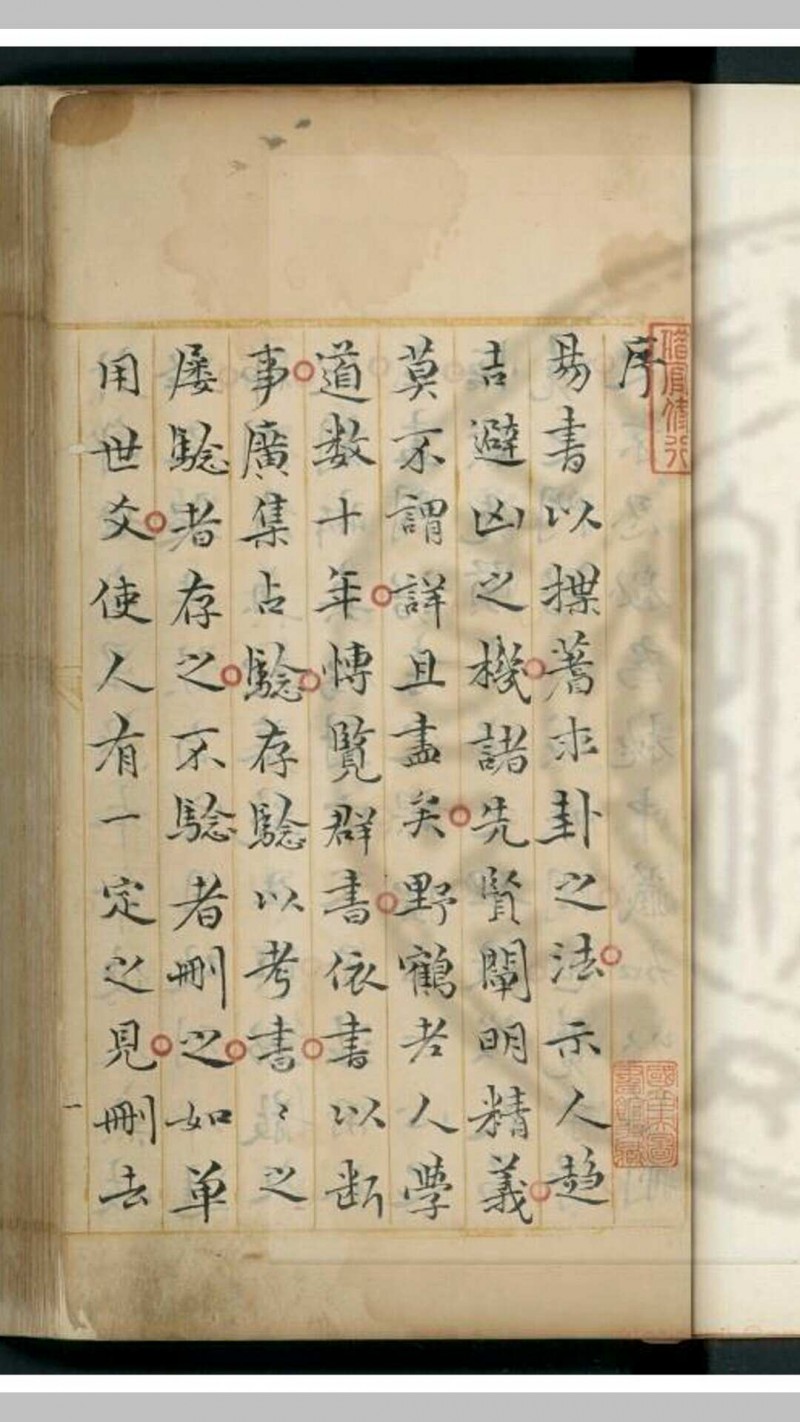 序
易書以揲蓍求卦之法示人趋
吉避凶之機諸先賢闡明精義
莫不謂詳且盡矣野鶴老人學
道数十年慱覽群書依書以断
事廣集占騐存騐以考書〻之
屡騐者存之不騐者刪之如单
用世爻使人有一定之見刪去
一